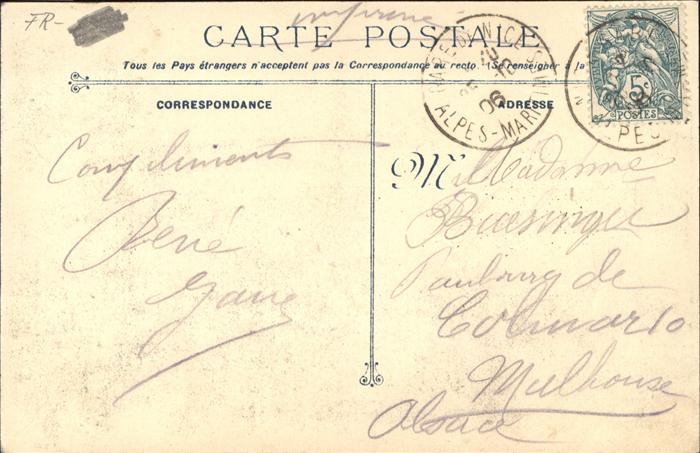 FR-
imprimé
CARTE POSTALE
Tous les Pays étrangers n'acceptent pas la Correspondance au recto. (Se renseigner à la
CORRESPONDANCE
ADRESSE
5c
POSTES
06
ALPES-MARIT
Compliments
René
M
Madame
Faubourg de
Colmar 10
Mulhouse
Alsace